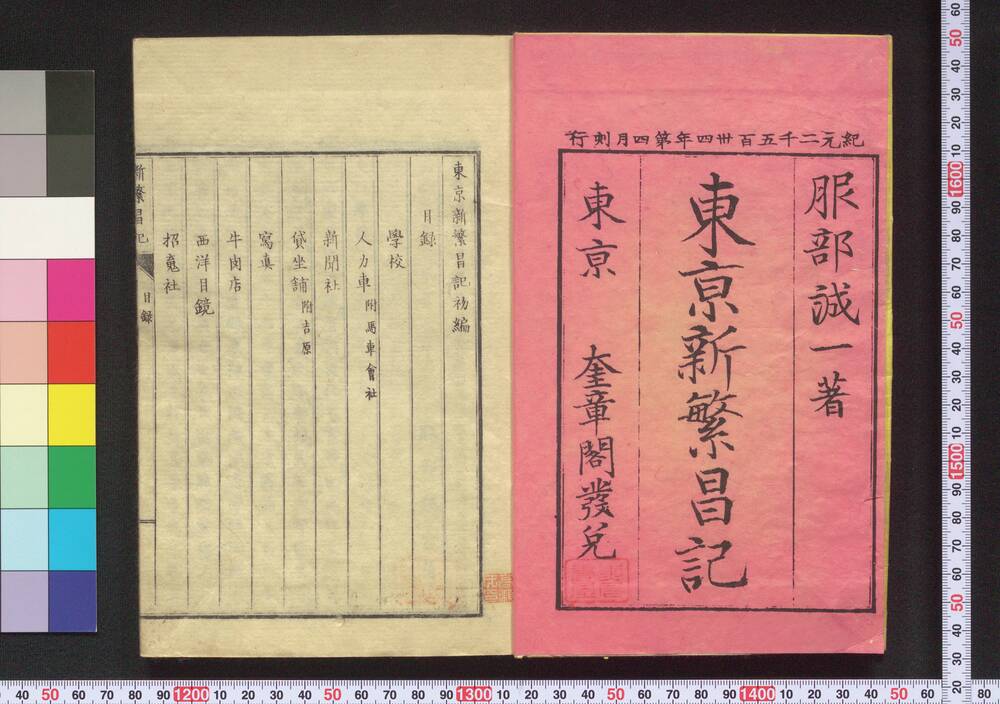 紀元二千五百卅四年第四月刻行
服部誠一著
東京新繁昌記
東京 奎章閣發兌
東京新繁昌記初編
目録
學校
人力車 附馬車會社
新聞社
貸坐舗 附吉原
寫真
牛肉店
西洋目鏡
招魂社
新繁昌記 目録